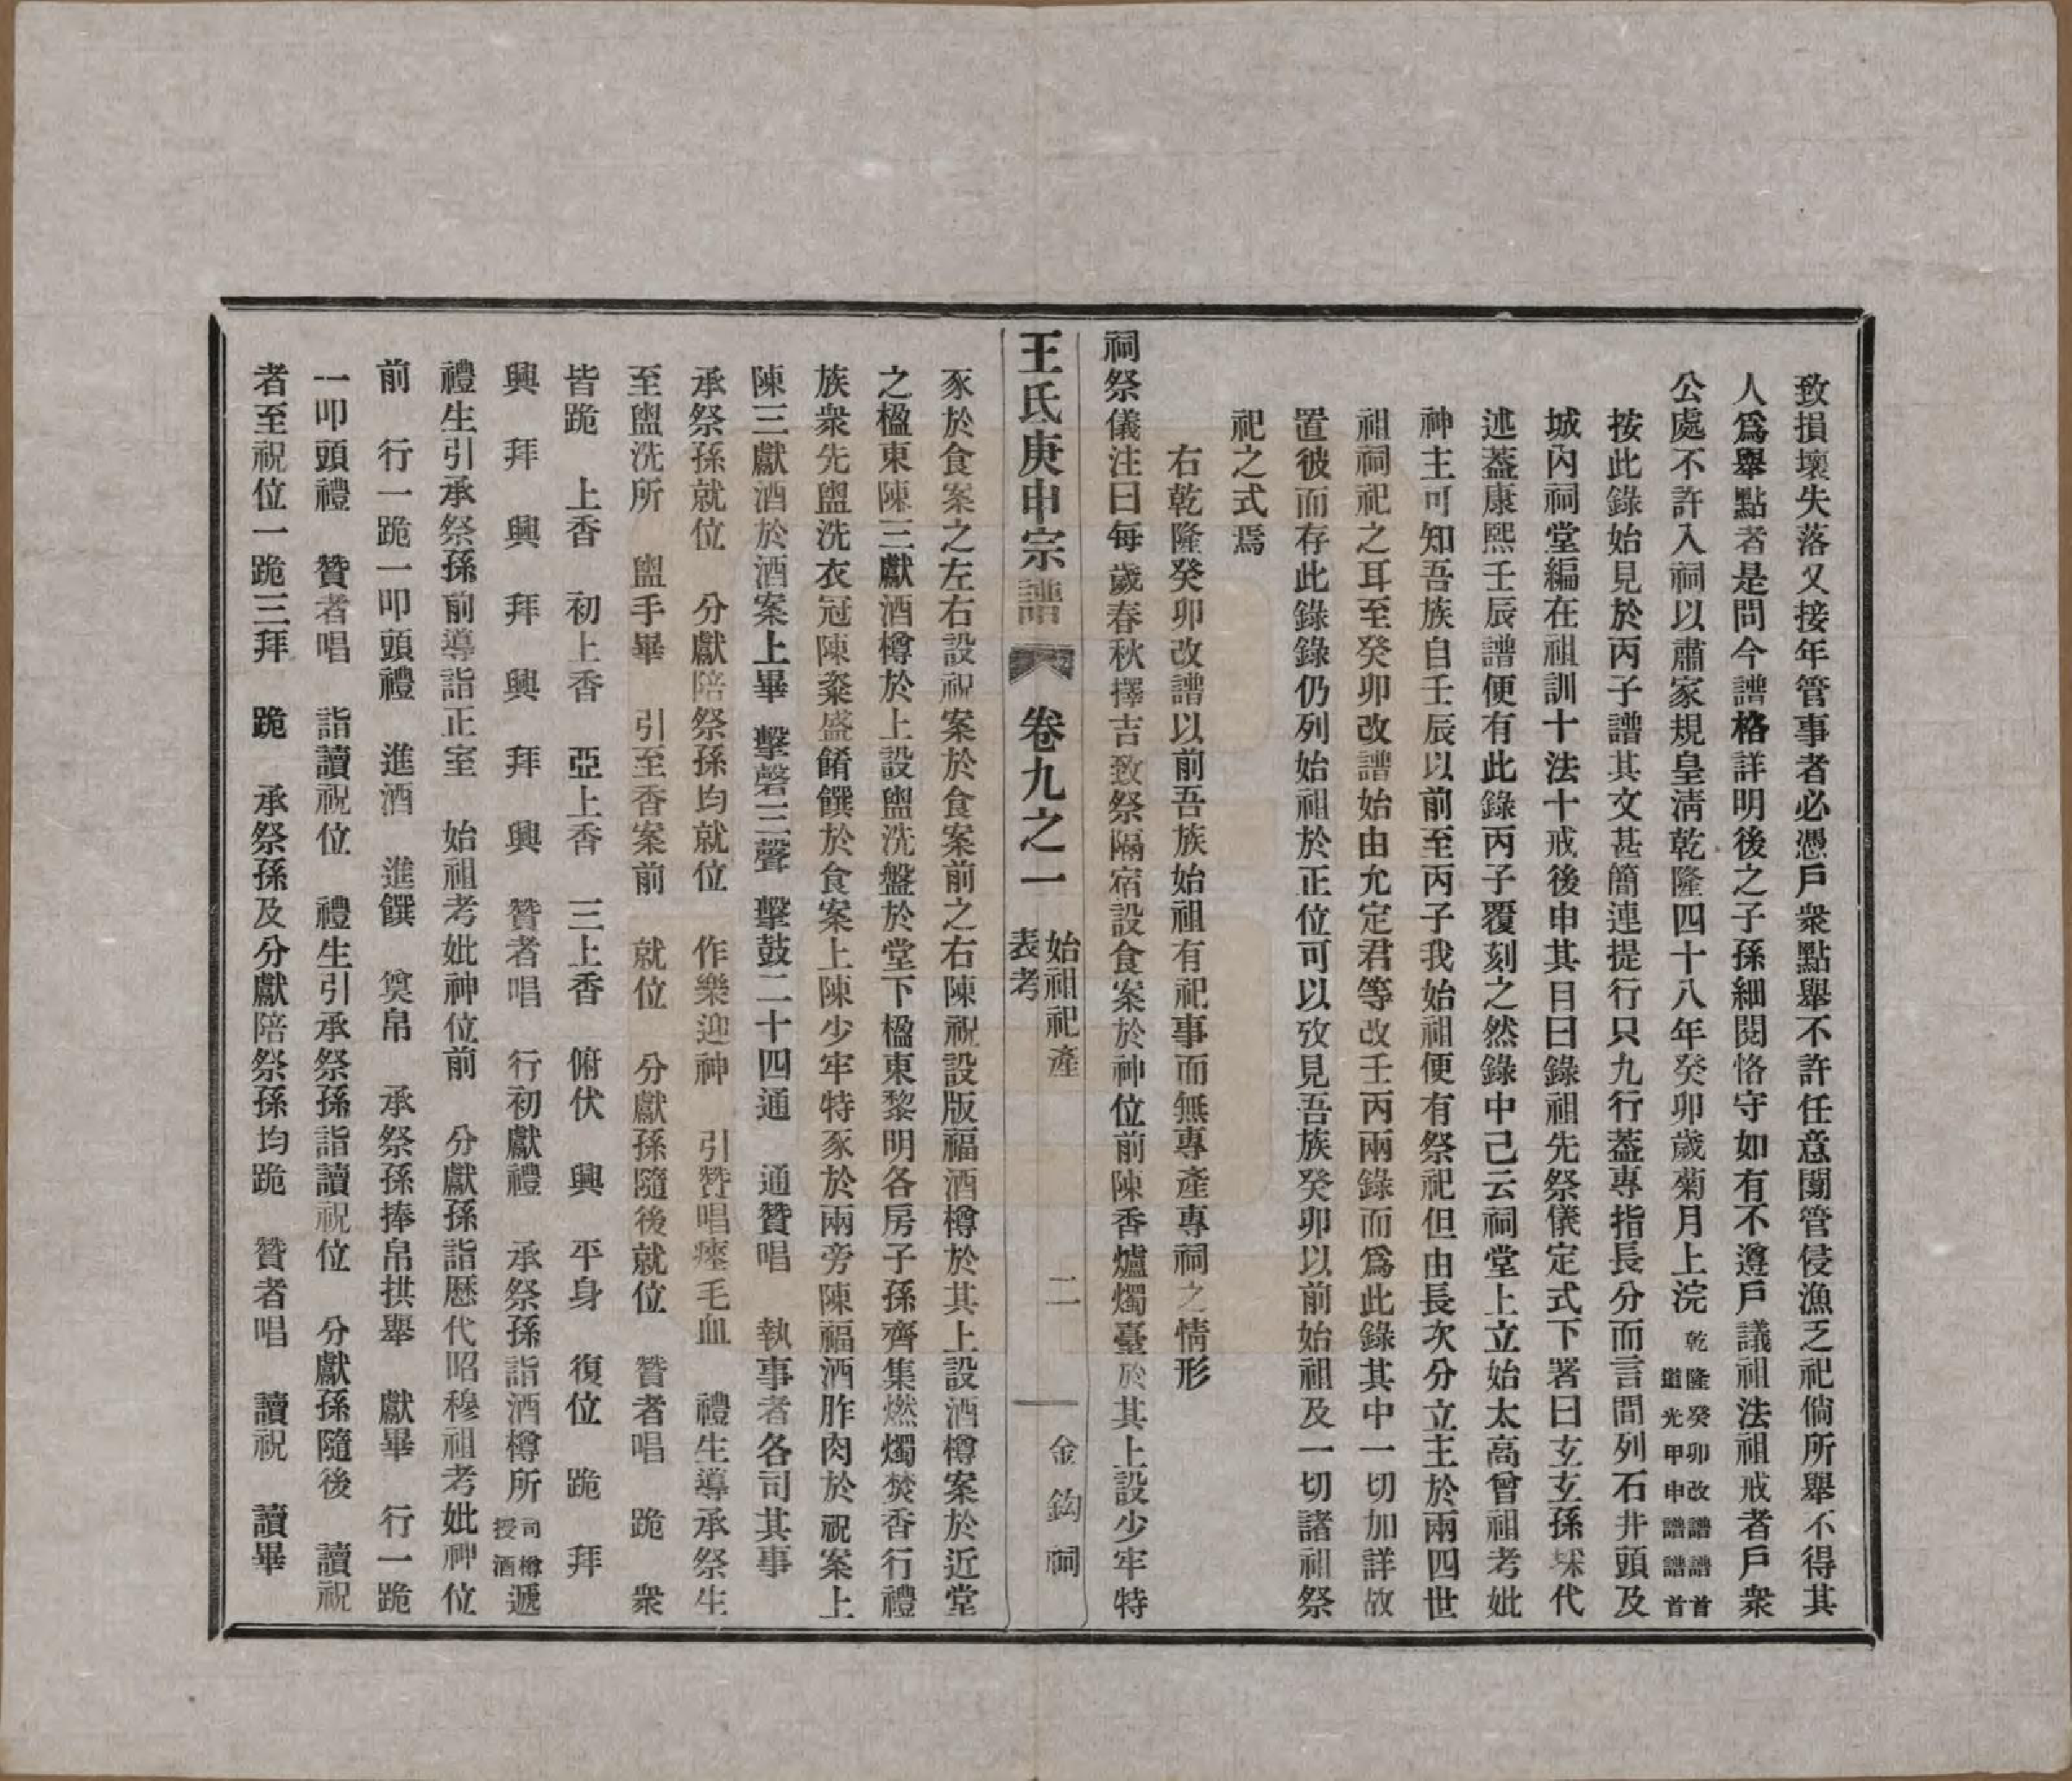 致損壞失落又接年管事者必憑戶衆點舉不許任意圖管侵漁乏祀倘所舉不得其
人爲舉點者是問今譜格詳明後之子孫細閱恪守如有不遵戶議祖法祖戒者戶衆
公處不許入祠以肅家規皇淸乾隆四十八年癸卯歲菊月上浣
乾隆癸卯改譜譜首
道光甲申譜譜首
按此錄始見於丙子譜其文甚簡連提行只九行蓋專指長分而言間列石井頭及
城內祠堂編在祖訓十法十戒後申其目曰錄祖先祭儀定式下署曰玄玄孫
代
述蓋康熙壬辰譜便有此錄丙子覆刻之然錄中己云祠堂上立始太高曾祖考妣
神主可知吾族自壬辰以前至丙子我始祖便有祭祀但由長次分立主於兩四世
祖祠祀之耳至癸卯改譜始由允定君等改壬丙兩錄而爲此錄其中一切加詳故
置彼而存此錄錄仍列始祖於正位可以攷見吾族癸卯以前始祖及一切諸祖祭
祀之式焉
右乾隆癸卯改譜以前吾族始祖有祀事而無專產專祠之情形
祠祭儀注曰每歲春秋擇吉致祭隔宿設食案於神位前陳香爐燭臺於其上設少牢特
王氏庚申宗譜
卷九之一
始祖祀產
表考
二
金鈎祠
豕於食案之左右設祝案於食案前之右陳祝設版福酒樽於其上設酒樽案於近堂
之楹東陳三獻酒樽於上設盥洗盤於堂下楹東黎明各房子孫齊集燃燭焚香行禮
族衆先盥洗衣冠陳粢盛餚饌於食案上陳少牢特豕於兩旁陳福酒胙肉於祝案上
陳三獻酒於酒案上畢 擊磬三聲 擊鼓二十四通 通贊唱 執事者各司其事
承祭孫就位 分獻陪祭孫均就位 作樂迎神 引贊唱瘞毛血 禮生導承祭生
至盥洗所 盥手畢 引至香案前 就位 分獻孫隨後就位 贊者唱 跪 衆
皆跪 上香 初上香 亞上香 三上香 俯伏 興 平身 復位 跪 拜
興 拜 興 拜 興 拜 興 贊者唱 行初獻禮 承祭孫詣酒樽所
司樽
授酒
遞
禮生引承祭孫前導詣正室 始祖考妣神位前 分獻孫詣歷代昭穆祖考妣神位
前 行一跪一叩頭禮 進酒 進饌 奠帛 承祭孫捧帛拱舉 獻畢 行一跪
一叩頭禮 贊者唱 詣讀祝位 禮生引承祭孫詣讀祝位 分獻孫隨後 讀祝
者至祝位一跪三拜 跪 承祭孫及分獻陪祭孫均跪 贊者唱 讀祝 讀畢